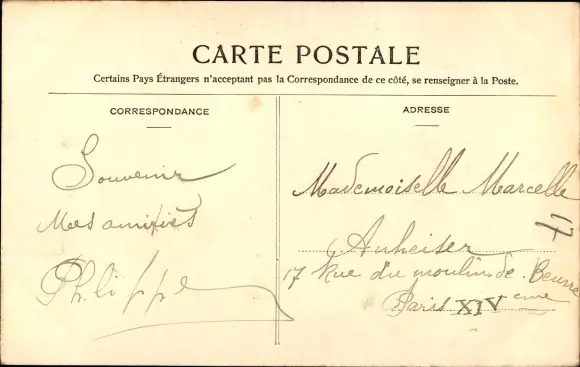 CARTE POSTALE
Certains Pays Étrangers n'acceptant pas la Correspondance de ce côté, se renseigner à la Poste.
CORRESPONDANCE
Souvenir
Mes amitiés
Philippe
ADRESSE
Mademoiselle Marcelle
Anheiser
17 Rue du moulin de Beurre
Paris XIV eme